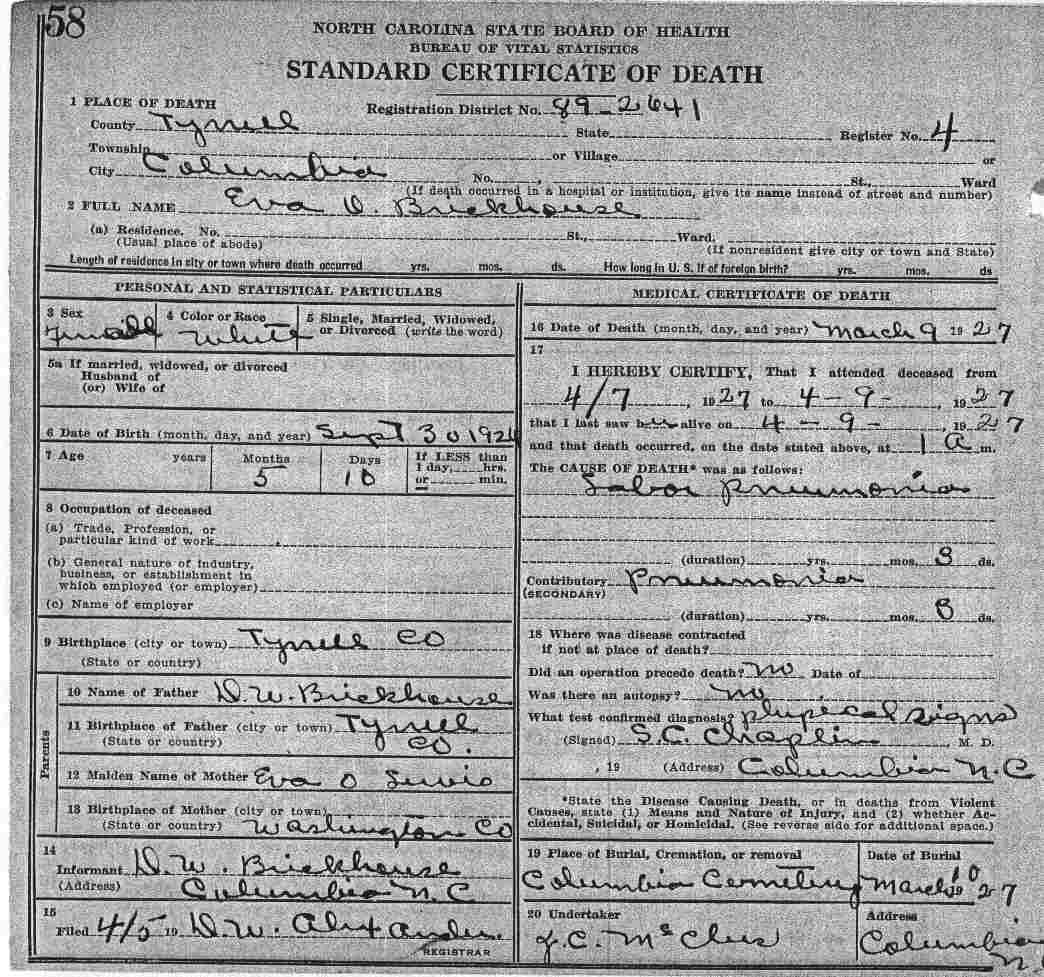 58
NORTH CAROLINA STATE BOARD OF HEALTH
BUREAU OF VITAL STATISTICS
STANDARD CERTIFICATE OF DEATH
1 PLACE OF DEATH Registration District No. 89-2641
County Tyrrell State Register No. 4
Township or Village or
City Columbia No. , St., Ward
(If death occurred in a hospital or institution, give its name instead of street and number)
2 FULL NAME Eva O. Brickhouse
(a) Residence. No. St., Ward.
(Usual place of abode) (If nonresident give city or town and State)
Length of residence in city or town where death occurred yrs. mos. ds. How long in U. S. if of foreign birth? yrs. mos. ds
PERSONAL AND STATISTICAL PARTICULARS
3 Sex 4 Color or Race 5 Single, Married, Widowed,
or Divorced (write the word)
Female White
5a If married, widowed, or divorced
Husband of
(or) Wife of
6 Date of Birth (month, day, and year) Sept 30 1926
7 Age years Months Days If LESS than
1 day, hrs.
or min.
5 10
8 Occupation of deceased
(a) Trade, Profession, or
particular kind of work
(b) General nature of industry,
business, or establishment in
which employed (or employer)
(c) Name of employer
9 Birthplace (city or town) Tyrrell Co
(State or country)
Parents
10 Name of Father D. W. Brickhouse
11 Birthplace of Father (city or town) Tyrrell
(State or country) Co.
12 Maiden Name of Mother Eva O
13 Birthplace of Mother (city or town)
(State or country) Washington Co
14
Informant D. W. Brickhouse
(Address) Columbia N. C
15
Filed 4/5 19 D. W. Alexander
REGISTRAR
MEDICAL CERTIFICATE OF DEATH
16 Date of Death (month, day, and year) March 9 1927
17
I HEREBY CERTIFY, That I attended deceased from
4/7, 1927 to 4-9-, 1927
that I last saw h alive on 4-9-, 1927
and that death occurred, on the date stated above, at 1 a m.
The CAUSE OF DEATH* was as follows:
Lobor pneumonia
(duration) yrs. mos. 3 ds.
Contributory Pneumonia
(SECONDARY)
(duration) yrs. mos. ds.
18 Where was disease contracted
if not at place of death?
Did an operation precede death? no Date of
Was there an autopsy? no
What test confirmed diagnosis? physical signs
(Signed) S. C. Chaplin, M. D.
, 19 (Address) Columbia N. C
*State the Disease Causing Death, or in deaths from Violent
Causes, state (1) Means and Nature of Injury, and (2) whether Ac-
cidental, Suicidal, or Homicidal. (See reverse side for additional space.)
19 Place of Burial, Cremation, or removal Date of Burial
Columbia Cemetery March 10 1927
20 Undertaker Address
J. C. McClees Columbia
N.